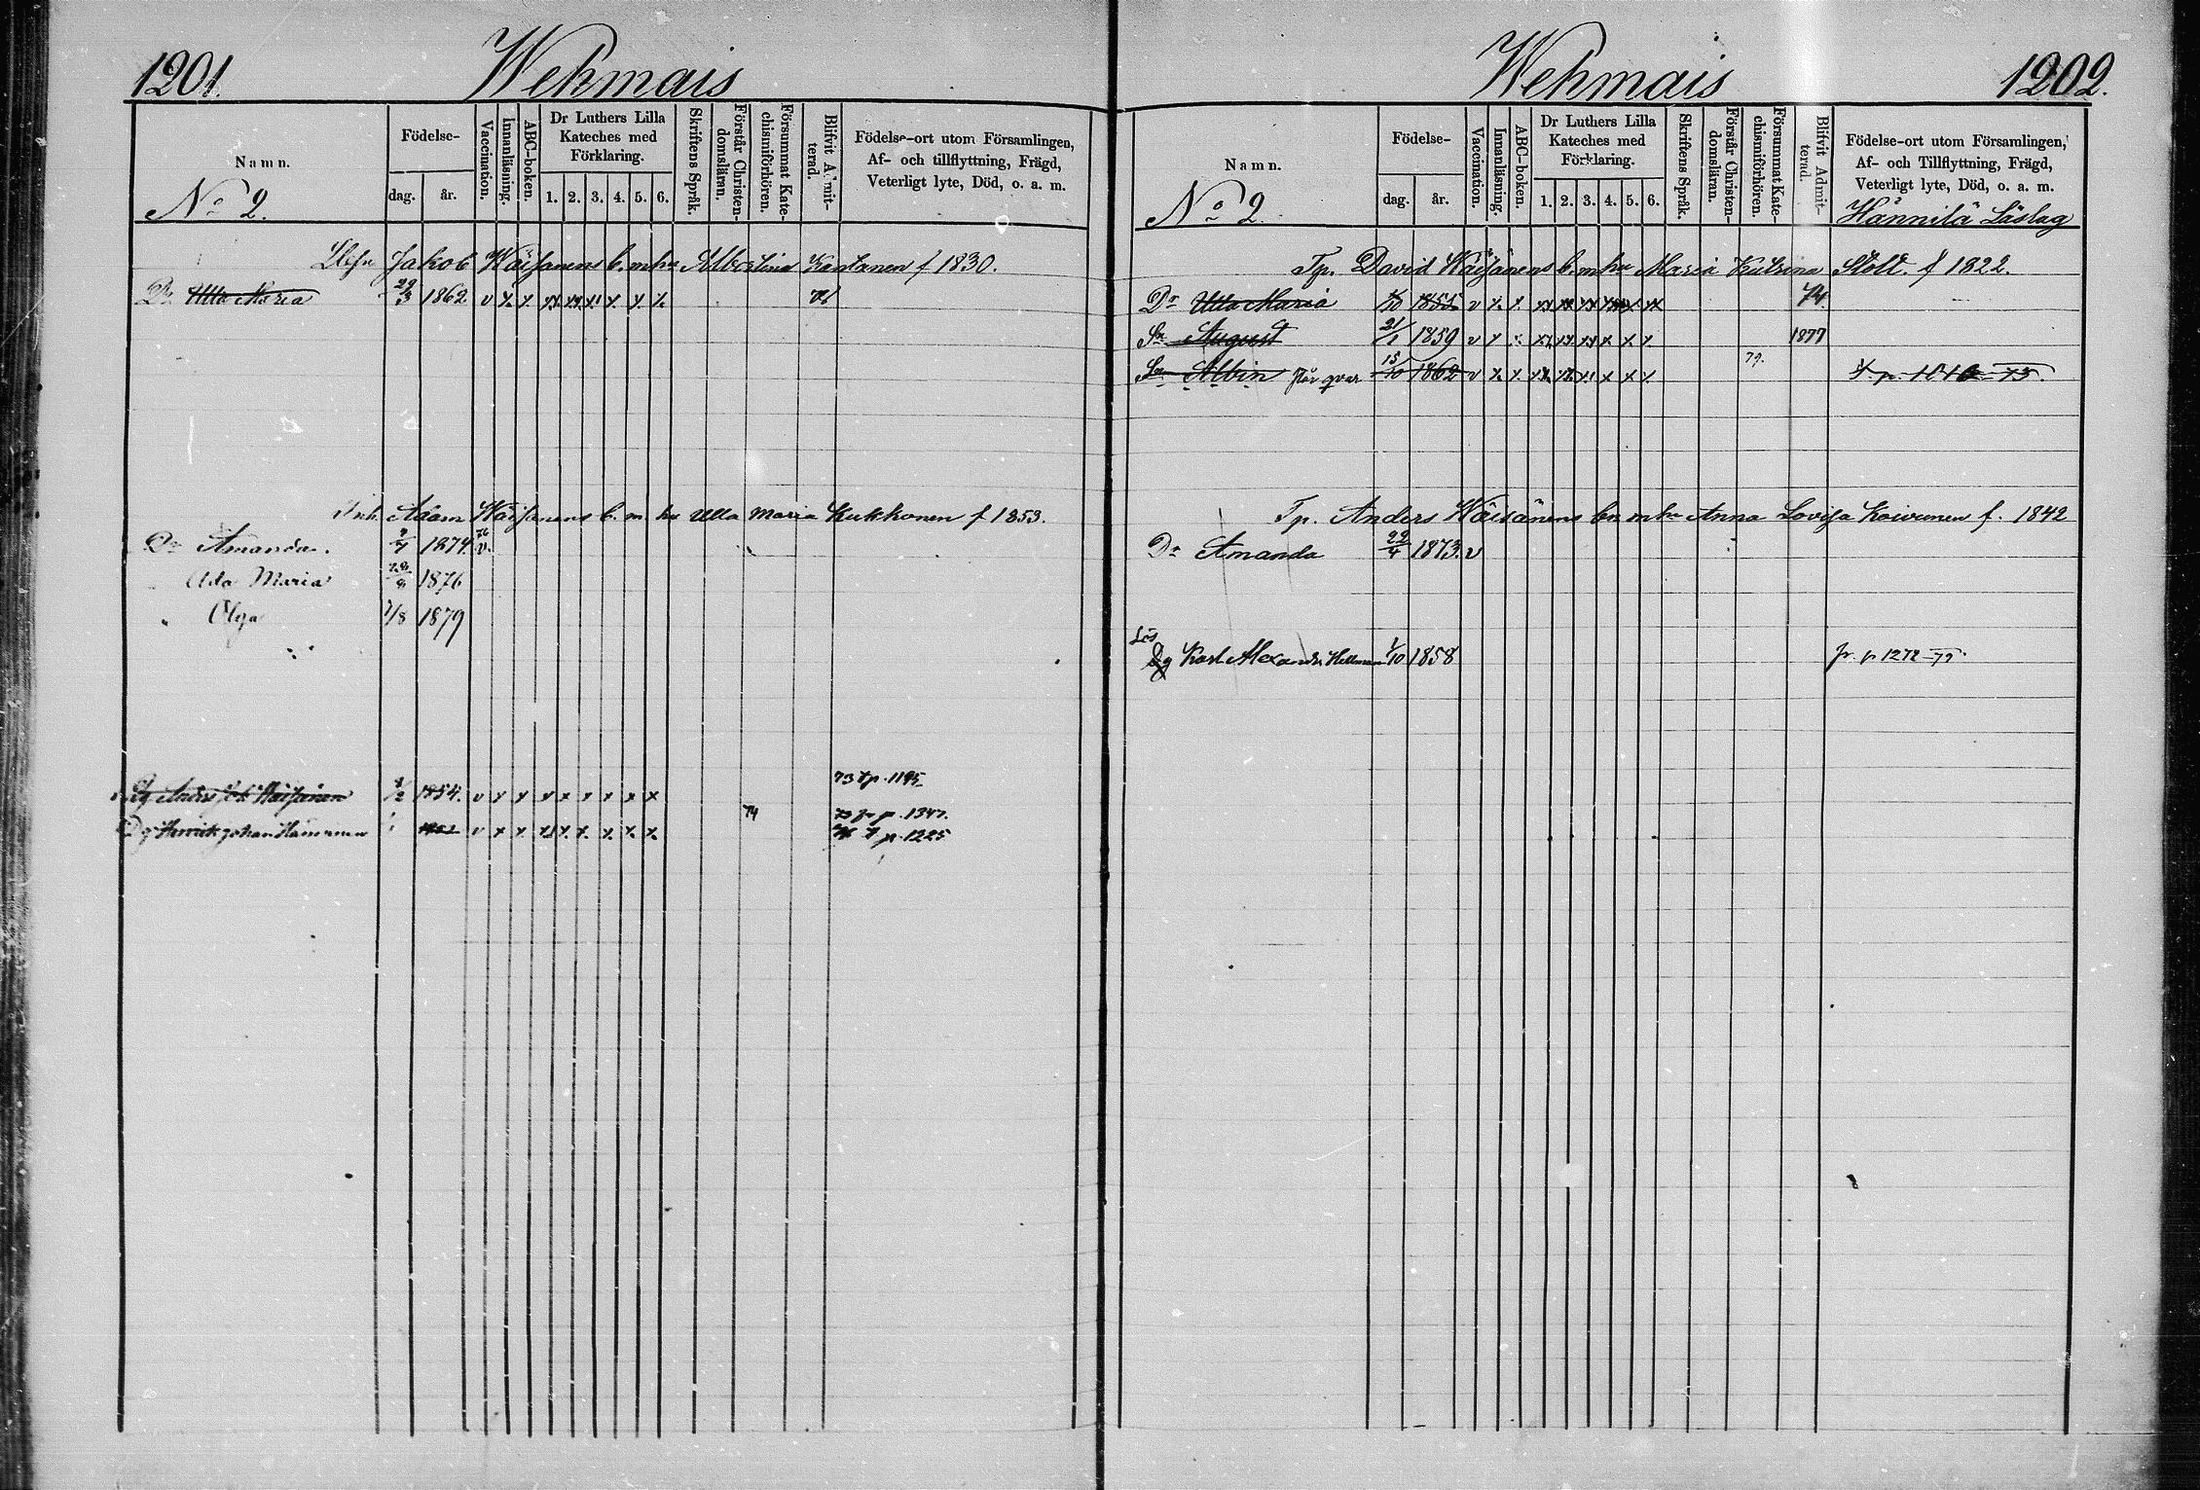 1201.
Wehmais
Namn.
No 2.
Födelse-
dag.
år.
Vaccination.
Innanläsning.
ABC-boken.
Dr Luthers Lilla Kateches med Förklaring.
1. 2. 3. 4. 5. 6.
Skriftens Språk.
Förstår Christen-domsläran.
Försummat Kate-chismiförhören.
Blifvit Admit-terad.
Födelse-ort utom Församlingen,
Af- och tillflyttning, Frägd,
Veterligt lyte, Död, o. a. m.
Jakob Wäisänens b. m hu Albertina Kantanen f 1830.
Dr Ulla Maria 29/3 1862 v x x
Adam Wäisänens b. m hu Ulla Maria Kukkonen f 1853.
Dr Amanda. 1874. v.
Ada Maria 1876
" Olga 7/8 1879
73 t p. 1195
1854. v x x x x x x x x
74
p. 1347.
Dg Henrik Johan v x x
p. 1225
Wehmais
1202.
Namn.
No 2.
Födelse-
dag.
år.
Vaccination.
Innanläsning.
ABC-boken.
Dr Luthers Lilla Kateches med Förklaring.
1. 2. 3. 4. 5. 6.
Skriftens Språk.
Förstår Christen-domsläran.
Försummat Kate-chismiförhören.
Blifvit Admit-terad.
Födelse-ort utom Församlingen,
Af- och Tillflyttning, Frägd,
Veterligt lyte, Död, o. a. m.
Hännilä Läslag
Tp. David Wäisänens b. m hu Maria Katrina Stolt. f 1822.
Dr Ulla Maria 1855 v x x 74.
Sn August 21/1 1859 v x 1877
Sn Albin står qvar 15/10 1862 v x x 79.
Tp. Anders Wäisänens bn mhu Anna Lovisa Koivunen f. 1842
Dr Amanda 22/4 1873. v
Lös
Karl Alexander Hellman 1/10 1858 fr. p 1272